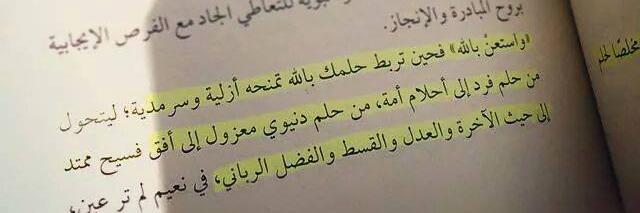 للتعاطي الجاد مع الفرص الإيجابية
بروح المبادرة والإنجاز.
«واستعنْ بالله» فحين تربط حلمك بالله تمنحه أزلية وسرمدية؛ ليتحول
من حلم فرد إلى أحلام أمة، من حلم دنيوي معزول إلى أفق فسيح ممتد
إلى حيث الآخرة والعدل والقسط والفضل الرباني، في نعيم لم تر عين،
مخلصًا لحلم